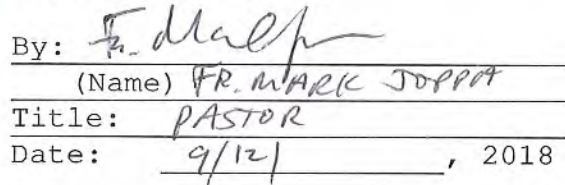 By: Fr.
(Name) FR. MARK JOPPA
Title: PASTOR
Date: 9/12/, 2018